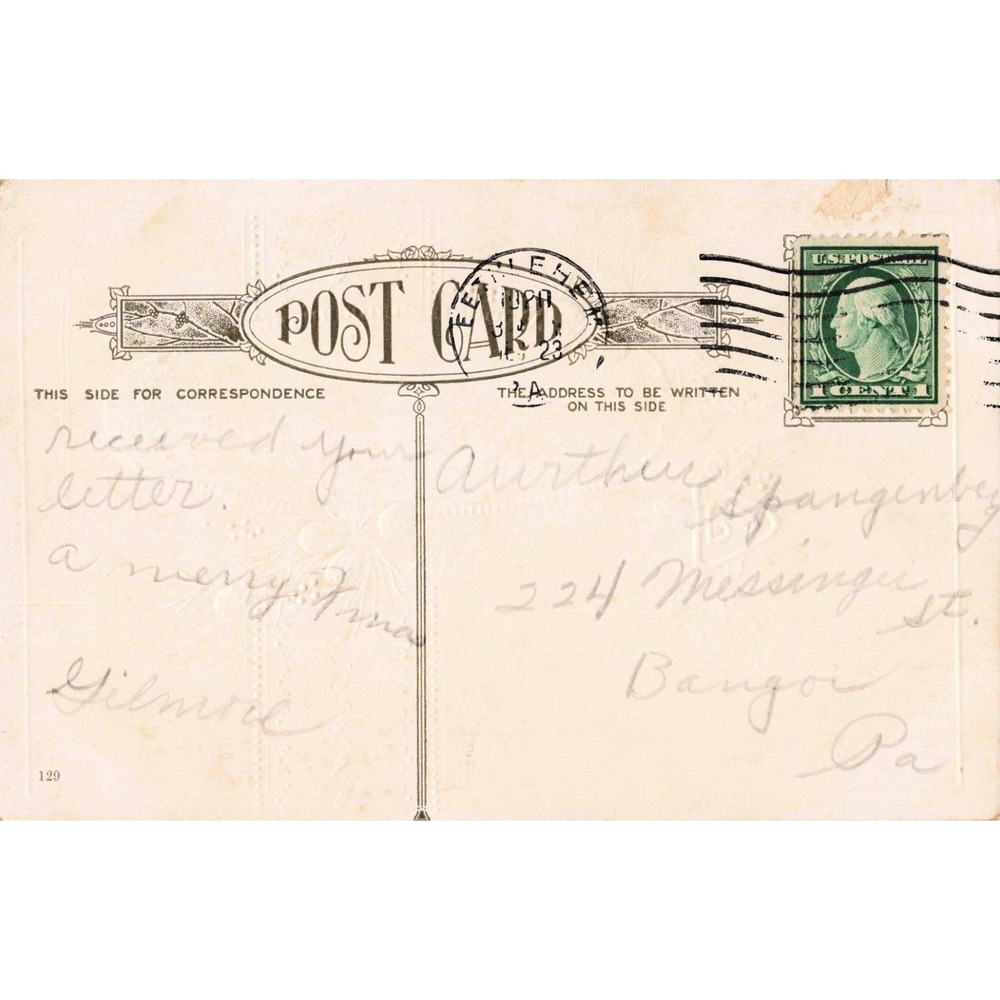 POST CARD
BETHLEHEM
23
PA
U.S. POSTAGE
1 CENT 1
THIS SIDE FOR CORRESPONDENCE
THE ADDRESS TO BE WRITTEN
ON THIS SIDE
received your
letter.
a merry Xmas
Gilmore
Aurthur Spangenberg
224 Messinger St.
Bangor
Pa
129